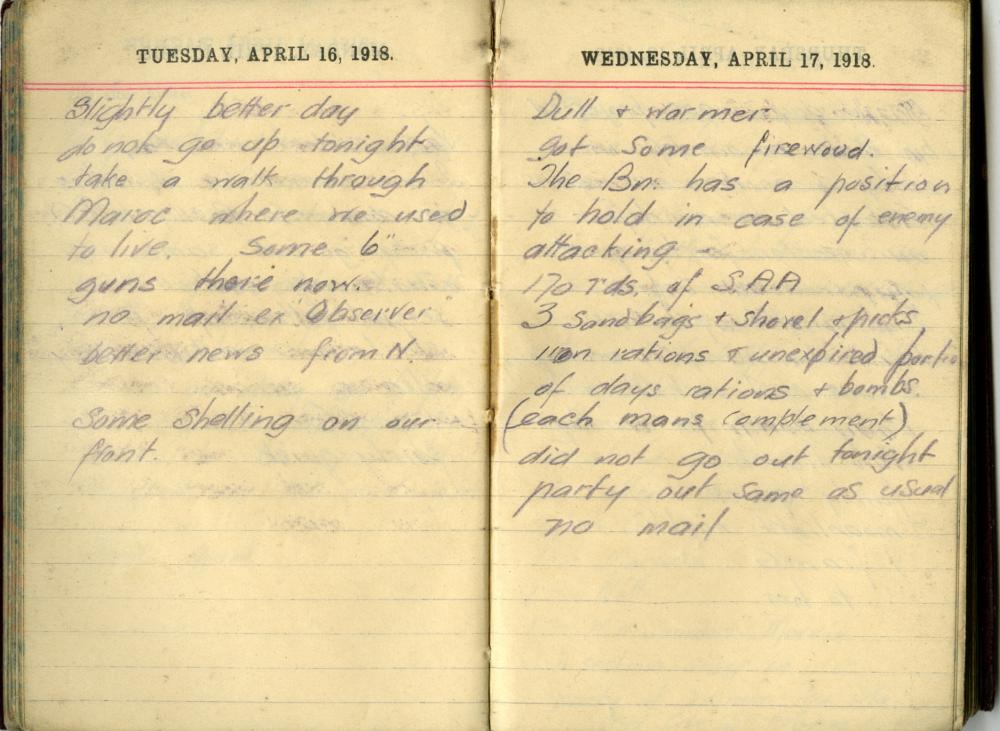 TUESDAY, APRIL 16, 1918.
Slightly better day
do not go up tonight
take a walk through
Maroc where we used
to live. Some 6"
guns there now.
no mail ex "Observer"
better news from N.
Some Shelling on our
front.
WEDNESDAY, APRIL 17, 1918.
Dull + warmer
got some firewood.
The Bn. has a position
to hold in case of enemy
attacking
170 rds. of SAA
3 Sandbags + shovel + picks
iron rations + unexpired portio
of days rations + bombs.
(each mans complement)
did not go out tonight
party out same as usual
no mail